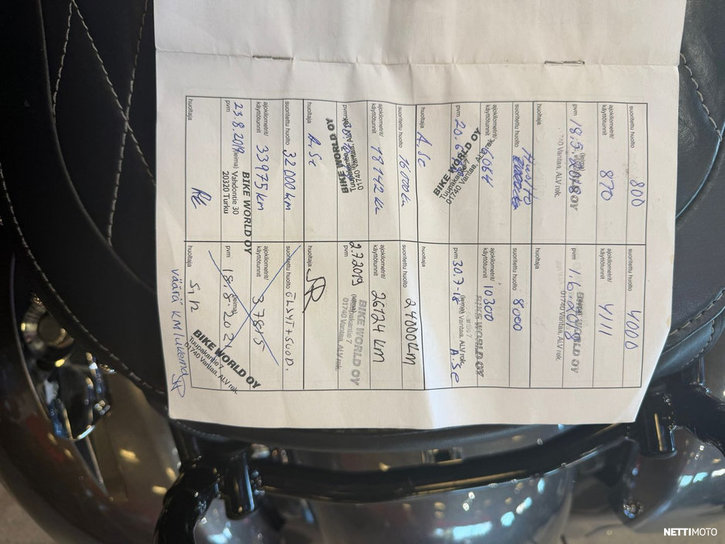 suoritettu huolto 800
ajokilometri/
käyttötunnit 870
pvm 18.5.2018
BIKE WORLD OY
01740 Vantaa, ALV rek.
huoltaja
suoritettu huolto 4000
ajokilometri/
käyttötunnit 4111
pvm 1.6.2018
01740 Vantaa, ALV rek.
huoltaja
suoritettu huolto Huolto
ajokilometri/
käyttötunnit
pvm
BIKE WORLD OY
01740 Vantaa, ALV rek.
huoltaja A.Se
suoritettu huolto 8000
ajokilometri/
käyttötunnit 10300
BIKE WORLD OY
pvm 30.7-18
01740 Vantaa, ALV rek.
huoltaja A.Se
suoritettu huolto 16000km
ajokilometri/
käyttötunnit 18142 km
pvm
BIKE WORLD OY
huoltaja A.Se
suoritettu huolto 24000km
ajokilometri/
käyttötunnit 26124 KM
pvm 2.7.2019
BIKE WORLD OY
01740 Vantaa, ALV rek.
huoltaja
suoritettu huolto 32000 km
ajokilometri/
käyttötunnit 33975 km
BIKE WORLD OY
pvm 23.8.2019
Vahdontie 30
20320 Turku
huoltaja
suoritettu huolto ÖLJYT+SUOD.
ajokilometri/
käyttötunnit 37815
pvm 18.8.2021
BIKE WORLD OY
01740 Vantaa, ALV rek.
huoltaja
väärä KM lukema
NETTIMOTO